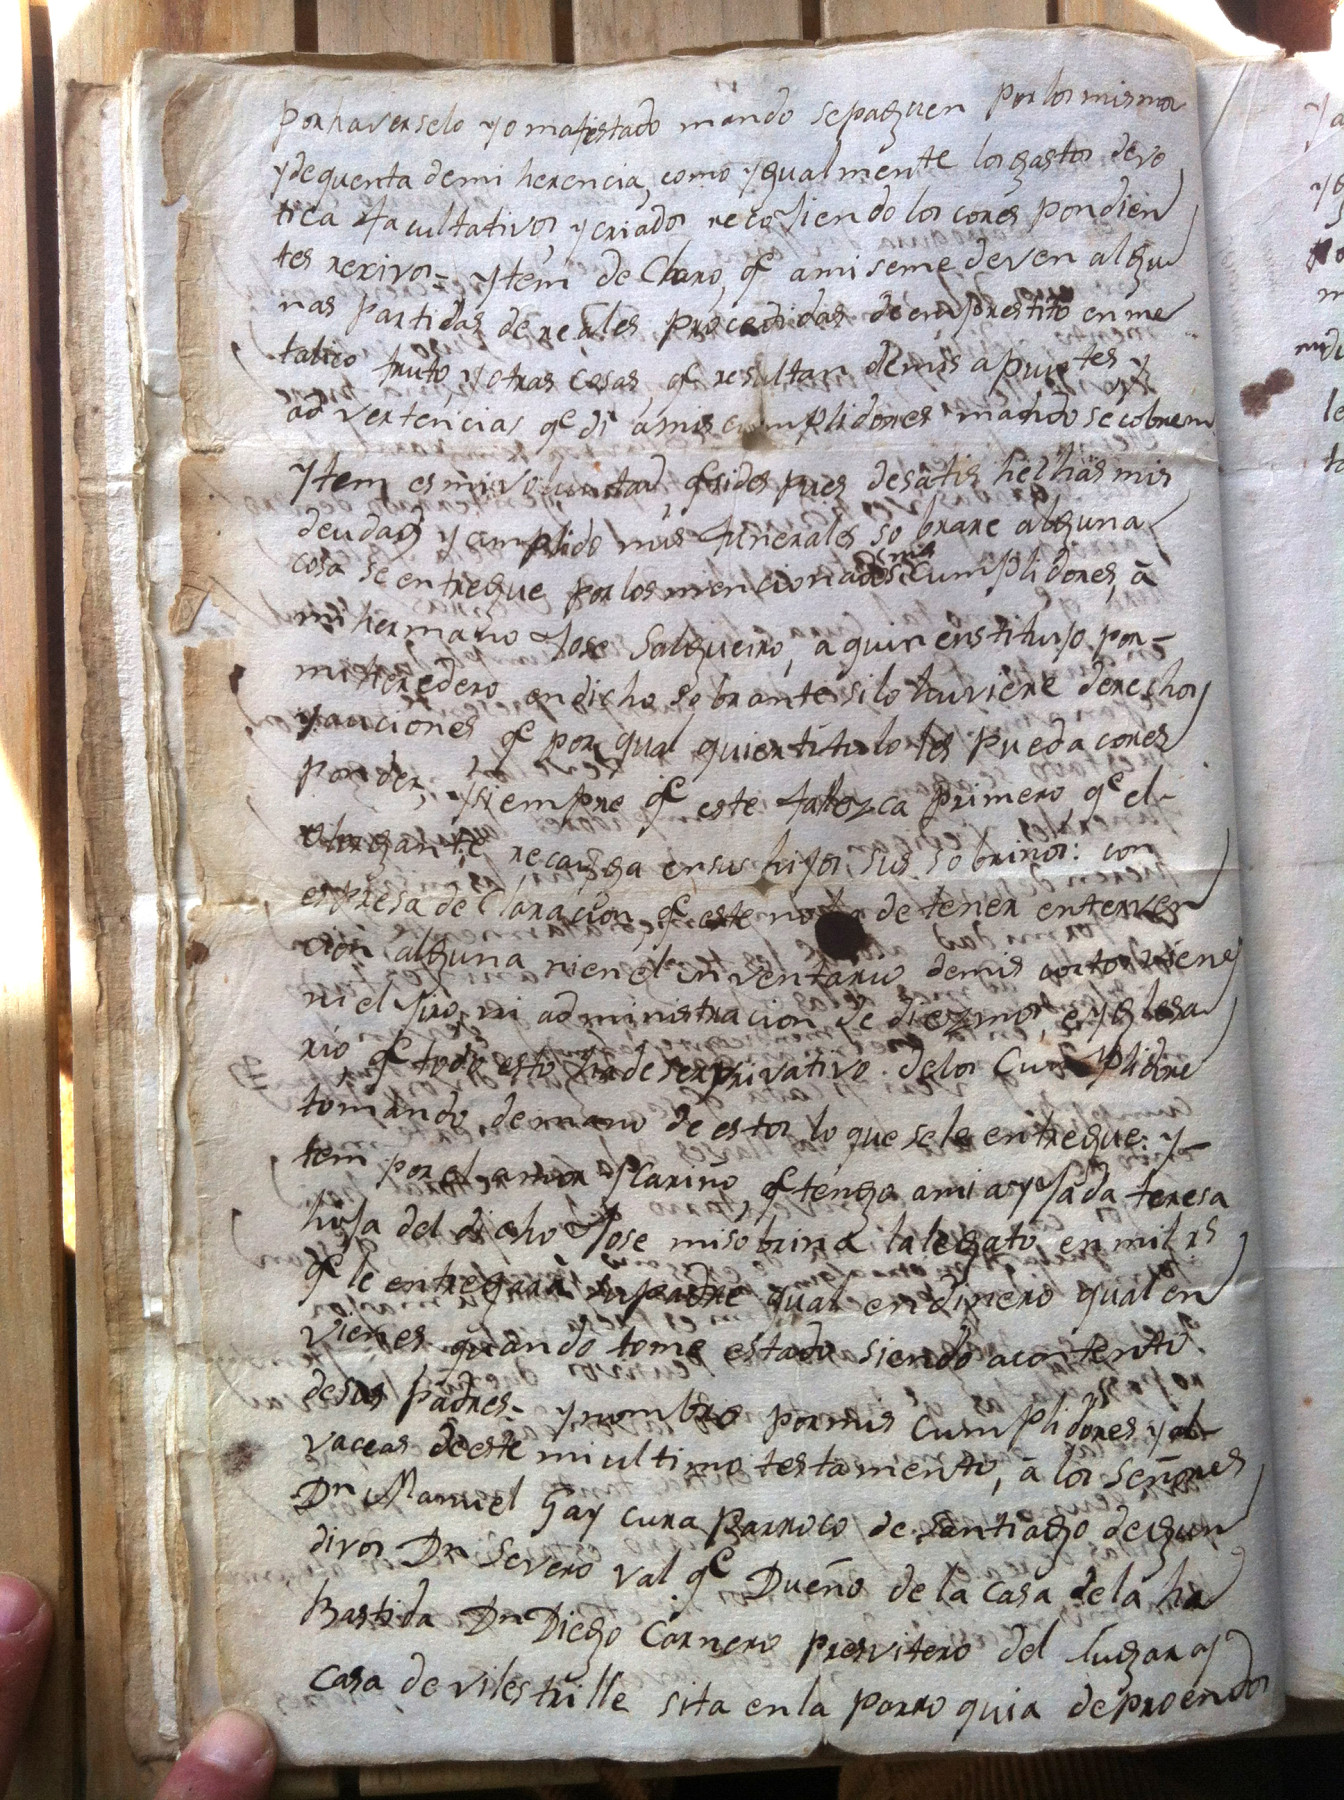 por haverselo yo mafestado mando se paguen por los mismos
y de quenta de mi herencia, como ygualmente los gastos de vo
tica facultativos, y criados recojiendo los cores pondien
tes rexivos = ytem de Claro, qe a mi se me deven algu
nas partidas de reales procedidas de emprestito en me
talico fruto, y otras cosas, qe resultan de mis apuntes y
advertencias qe di a mis cumplidores mando se cobren
Ytem es mi voluntad, qe si des pues de satis hechas mis
deudas y cumplido mis funerales so brare alguna
cosa se entregue por los mencionados mis Cumplidores, á
mi hermano Jose Salgueiro, a quin enstituyo por
mi heredero en dicho sobrante si lo huviere derechos
y auciones qe por qual quier titulo les pueda cores
ponder, y siempre qe este fallezca primero qe el
otorgante recaiga en sus hijos sus sobrinos: con
espresa de Claracion, qe este no de tener enterven
cion alguna ni en el inventario demis cortos viene
ni el Jiro, ni administracion de diezmos, e yglesa
rio qe todo esto ha de ser privativo de los Cumplidore
tomando de mano de estos lo que se le entregue: y
tem por el amor y Cariño, qe tengo a mi ayjada teresa
hija del dicho Jose mi sobrina la legato en mil rs
qe le entregará su padre qual en dinero qual en
vienes quando tome estado siendo acontento
de sus padres = y nombro por mis Cumplidores y al
vaceas de este mi ultimo testamento, á los Señores
Dn Manuel Gay cura parroco de Santiago de gun
divos Dn Severo Val qe Dueño de la casa de la ha
Bastida Dn Diego Cornero presvitero del lugar y
casa de vilestrille sita en la parro quia de proendos